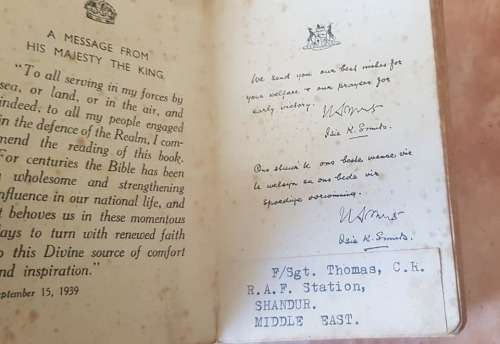 A MESSAGE FROM
HIS MAJESTY THE KING
"To all serving in my forces by
sea, or land, or in the air, and
indeed, to all my people engaged
in the defence of the Realm, I com-
mend the reading of this book.
For centuries the Bible has been
wholesome and strengthening
influence in our national life, and
it behoves us in these momentous
days to turn with renewed faith
to this Divine source of comfort
and inspiration."
September 15, 1939
We send you our best wishes for
your welfare & our prayers for
early victory.
Isie K. Smuts.
Ons stuur U ons beste wense vir
U welsyn en ons bede vir
spoedige oorwinning.
Isie K. Smuts.
F/Sgt. Thomas, C.R.
R.A.F. Station,
SHANDUR.
MIDDLE EAST.